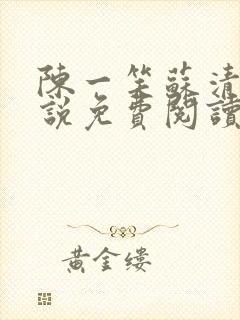 陳一笑蘇清
說免費閱讀
黃金縷